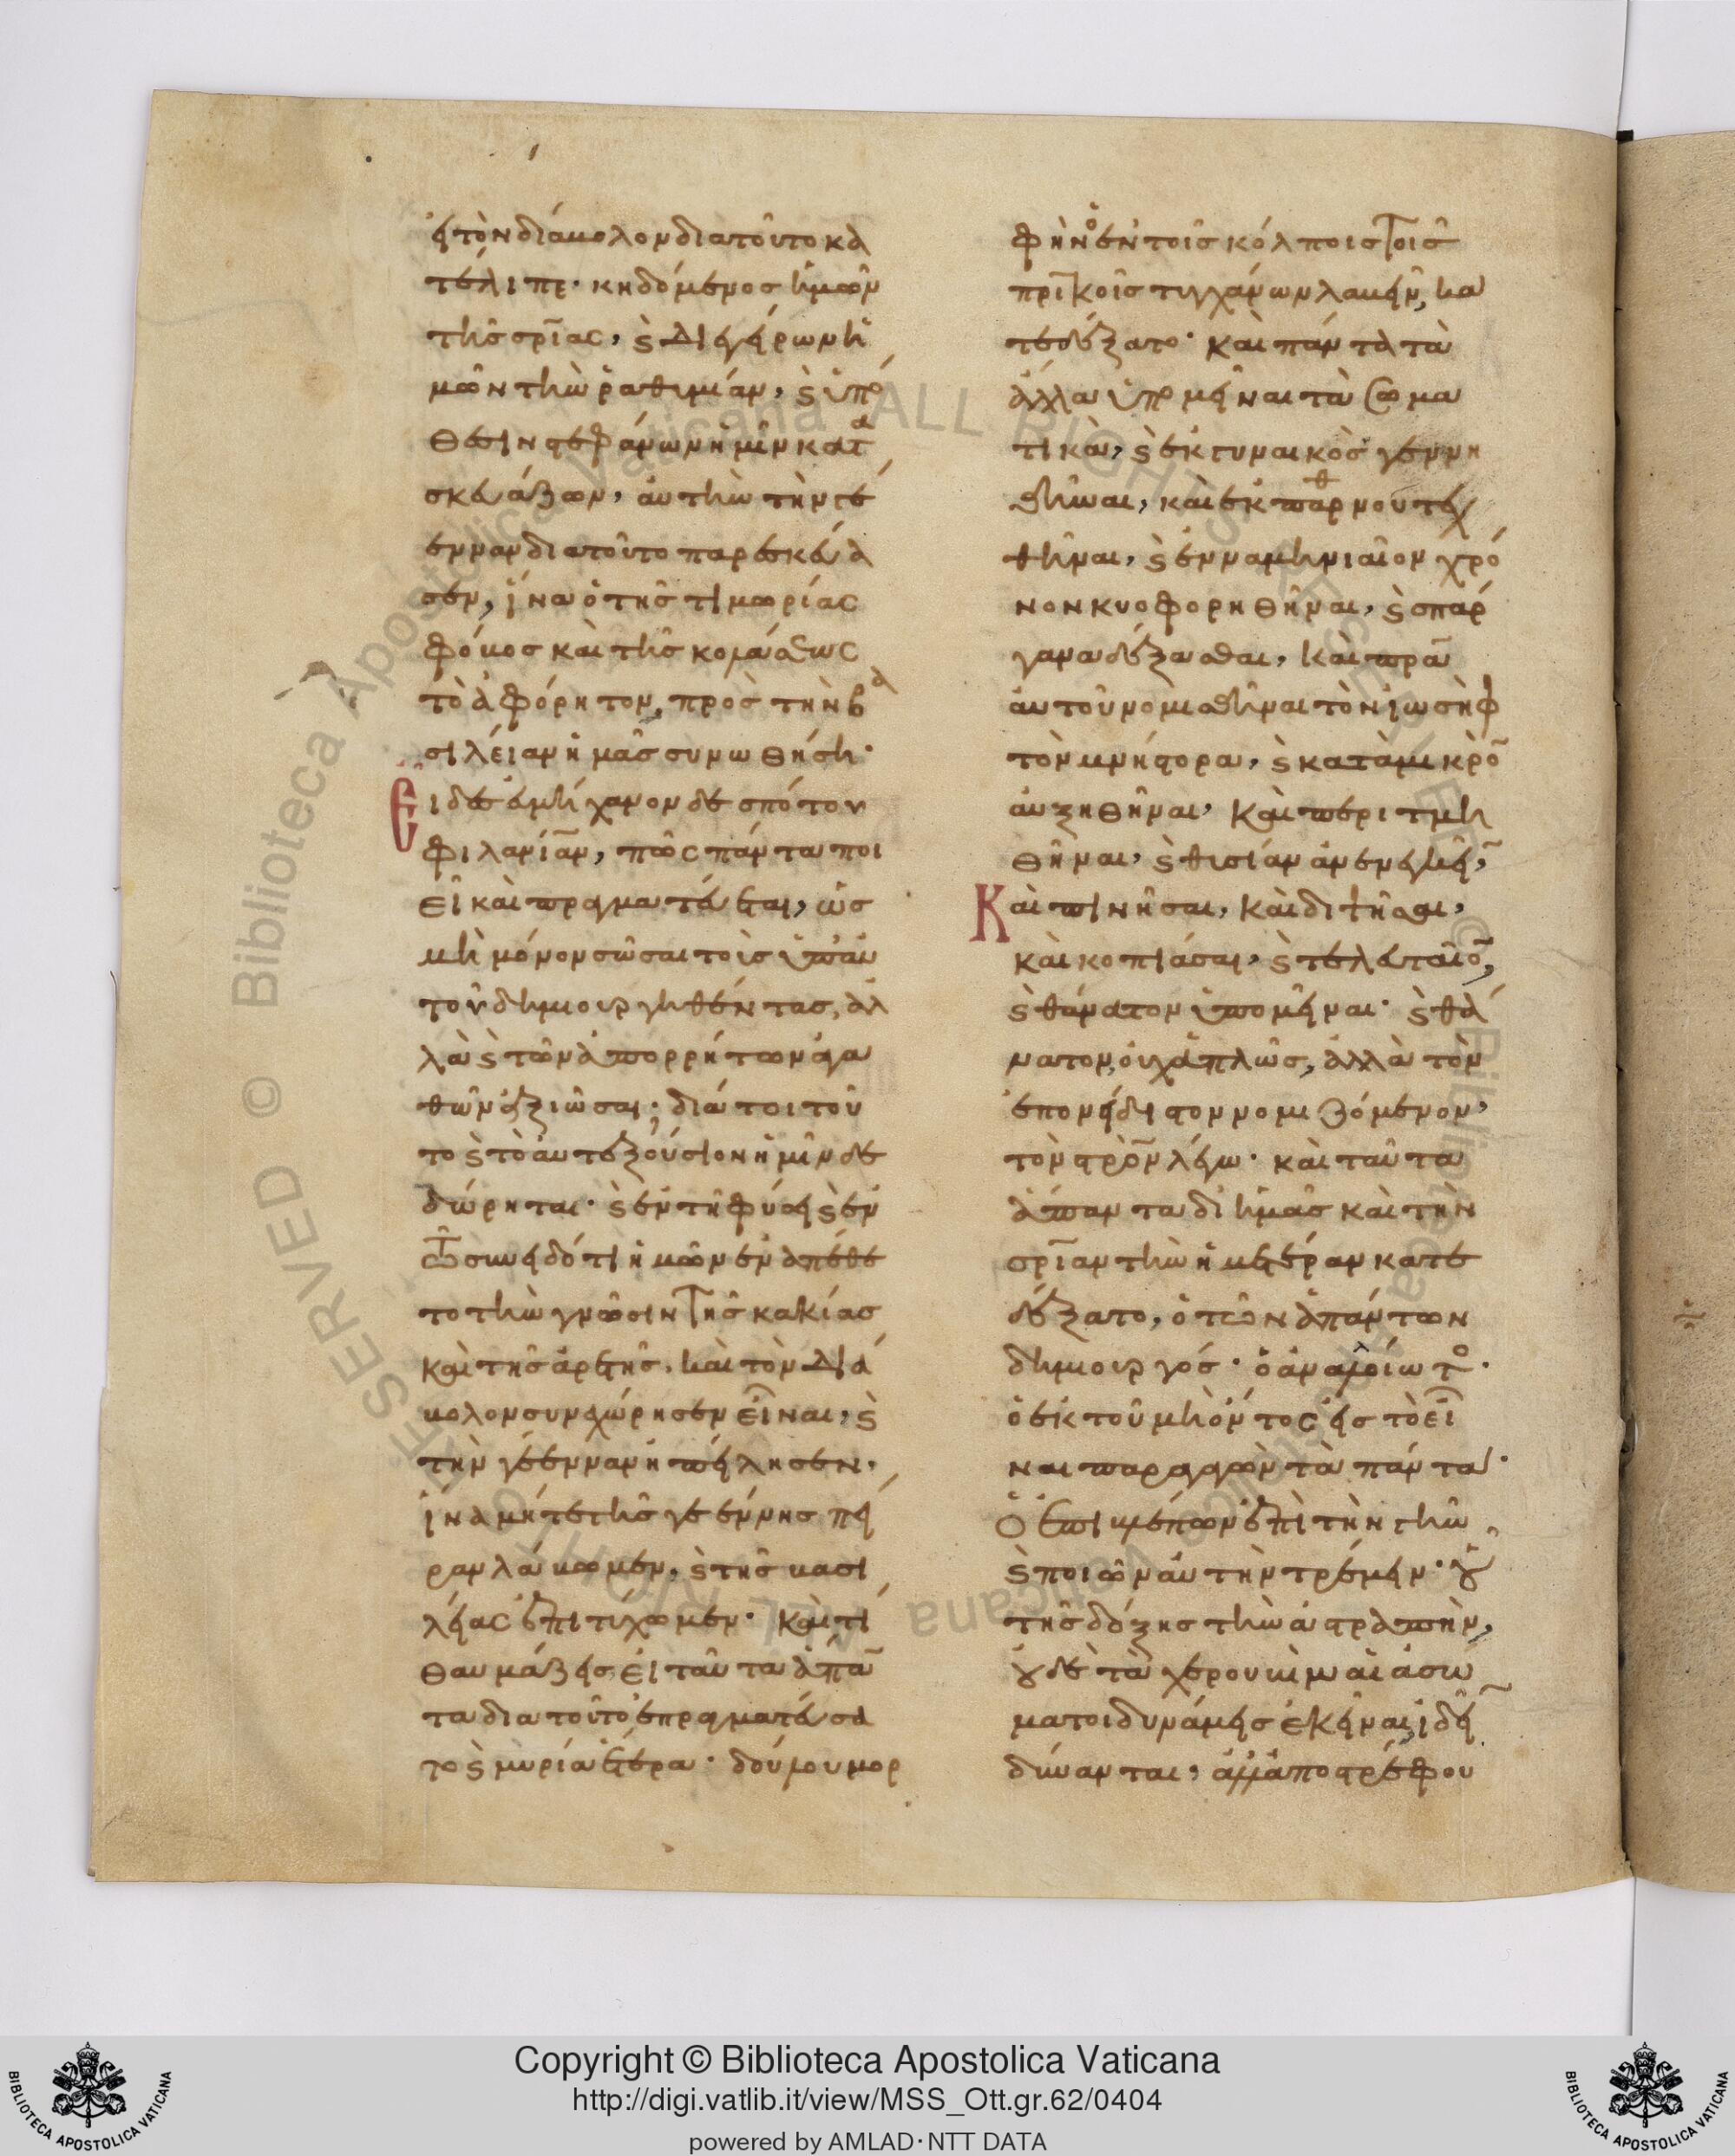 εἰ τὸν διάβολον διατοῦτο κα
τέλιπε· κηδόμενος ἡμῶν
τῆς σρ̅ιας, ϗ διεγείρων ἡ
μῶν τὴν ῥαθυμίαν, ϗ ὑπό
θεσιν στεφάνων ἡμῖν κατα
σκευάζων, αὐτὴν τὴν γέ
ενναν διατοῦτο παρεσκεύα
σεν, ἵνα ὁ τῆς τιμωρίας
φόβος καὶ τῆς κολάσεως
τὸ ἀφόρητον, πρὸς τὴν βα
σιλείαν ἡμᾶς συνωθήση·
Εἶδες ἀμήχανον δεσπότου
φιλανί̅αν, πῶς πάντα ποι
εῖ καὶ πραγματεύεται, ὥστε
μὴ μόνον σῶσαι τοὺς ὑπ' αὐ
τοῦ δημιουργηθέντας, ἀλ
λὰ ϗ τῶν ἀπορρήτων ἀγα
θῶν ἀξιῶσαι· διά τοι τοῦ
το ϗ τὸ αὐτεξούσιον ἡμῖν δε
δώρηται· ϗ ἐν τῇ φύσει ϗ ἐν
τῶ συνειδότι ἡμῶν ἐναπέθε
το τὴν γνῶσιν τῆς κακίας
καὶ τῆς ἀρετῆς. καὶ τὸν διά
βολον συνεχώρησεν εἶναι, ϗ
τὴν γέενναν ἠπείλησεν.
ἵνα μήτε τῆς γεέννης πεῖ
ραν λάβωμεν, ϗ τῆς βασι
λείας ἐπιτύχωμεν· Καὶ τί
θαυμάζεις εἰ ταῦτα ἅπαν
τα διατοῦτο ἐπραγματεύσα
το ϗ μυρία ἕτερα· δούλου μορ
φὴν ὁ ἐν τοῖς κόλποις τοῖς
πρ̅ικοῖς τυγχάνων λαβεῖν, κα
τεδέξατο· καὶ πάντα τὰ
ἄλλα ὑπομεῖναι τὰ σωμα
τικὰ, ϗ ἐκ γυναικὸς γεννη
θῆναι, καὶ ἐκ παρθένου τεχ
θῆναι, ϗ ἐνναμηνιαῖον χρό
νον κυοφορηθῆναι, ϗ σπάρ
γανα δέξασθαι, καὶ πρ̅α
αὐτοῦ νομισθῆναι τὸν ἰωσὴφ
τὸν μνήστορα, ϗ κατὰ μικρὸν
αὐξηθῆναι, καὶ περιτμη
θῆναι, ϗ θυσίαν ἀνενεγκεῖν,
Καὶ πινῆσαι, καὶ διψῆσαι,
καὶ κοπιάσαι, ϗ τελευταῖον,
ϗ θάνατον ὑπομεῖναι· ϗ θά
νατον, οὐχ ἁπλῶς, ἀλλὰ τὸν
ἐπονείδιστον νομιζόμενον,
τὸν στρ̅ον λέγω· καὶ ταῦτα
ἅπαντα δι' ἡμᾶς καὶ τὴν
σρ̅ιαν τὴν ἡμετέραν κατε
δέξατο, ὁ τῶν ἁπάντων
δημιουργός· ὁ ἀναλλοίωτος·
ὁ ἐκ τοῦ μὴ ὄντος εἰς τὸ εἶ
ναι παραγαγὼν τὰ πάντα·
ὁ ἐπιβλέπων ἐπὶ τὴν γῆν
ϗ ποιῶν αὐτὴν τρέμειν· οὗ
τῆς δόξης τὴν ἀστραπὴν,
οὐδὲ τὰ χερουβὶμ αἱ ἀσώ
ματοι δυνάμεις ἐκεῖναι ἰδεῖν
δύνανται, ἀλλ' ἀποστρέφου